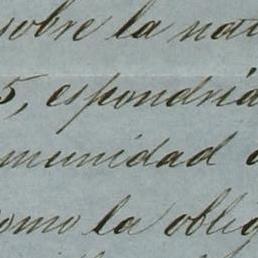 sobre la natu
5, espondria
munidad
como la oblig